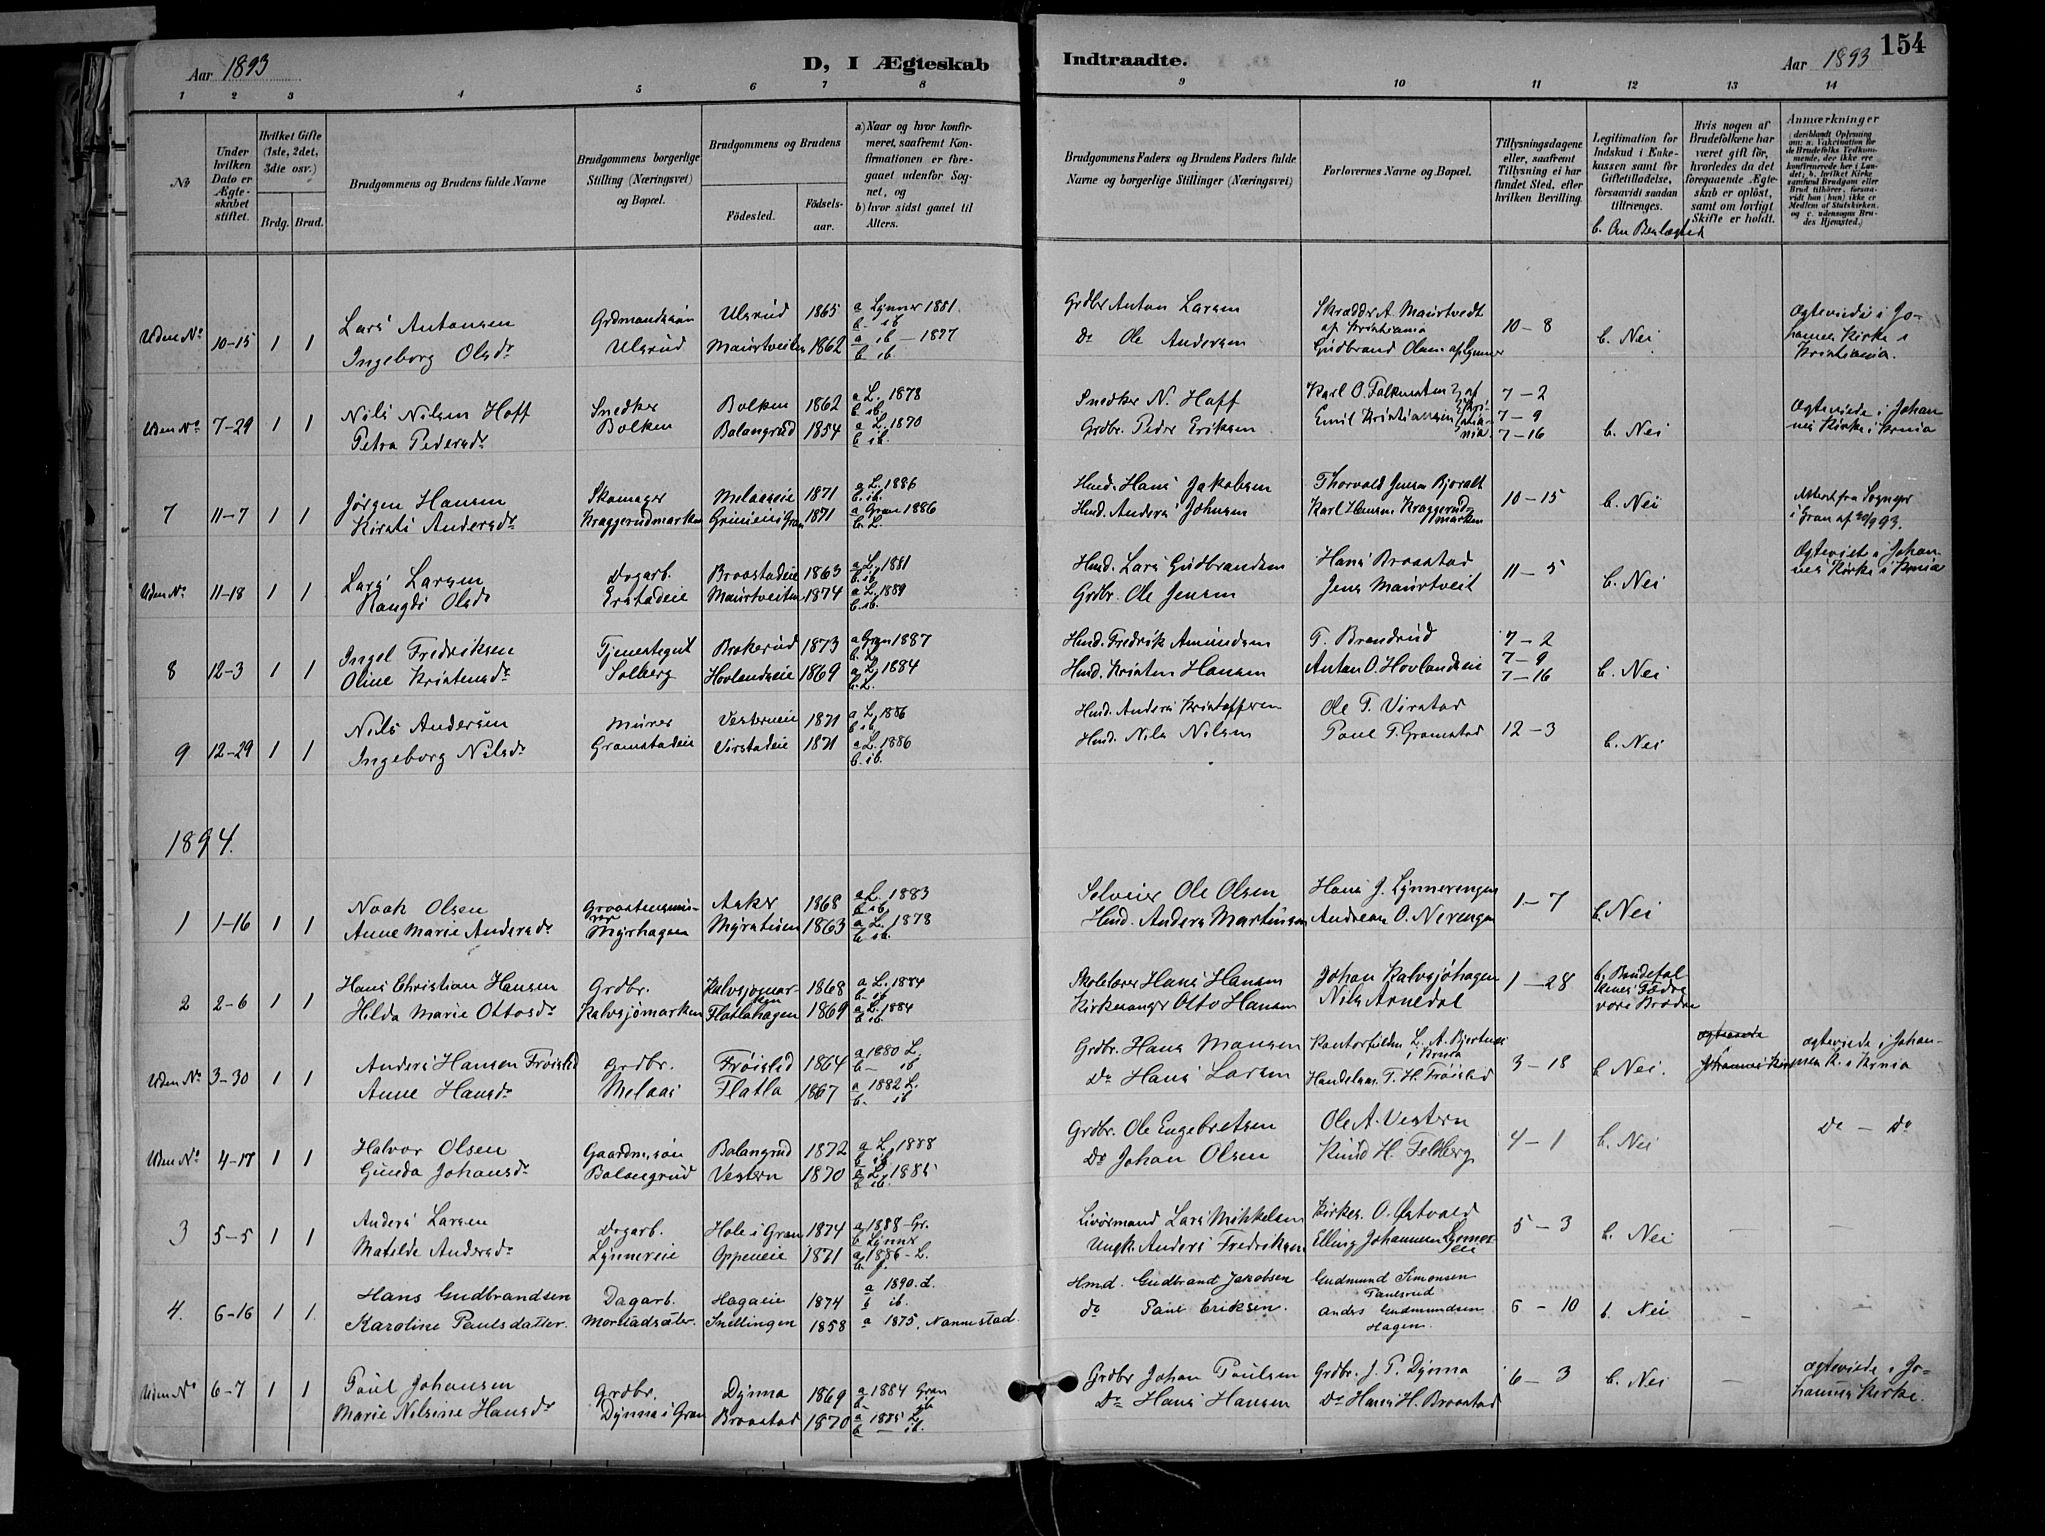 Aar 1893
D, I Ægteskab
Indtraadte.
Aar 1893
154
1 2 3 4 5 6 7 8 9 10 11 12 13 14
No
Under hvilken Dato er Ægteskabet stiftet.
Hvilket Gifte (1ste, 2det, 3die osv.)
Brdg. Brud.
Brudgommens og Brudens fulde Navne
Brudgommens borgerlige Stilling (Næringsvei) og Bopæl.
Brudgommens og Brudens
Fødested.
Fødsels-aar.
a) Naar og hvor konfirmeret, saafremt Konfirmationen er foregaaet udenfor Sognet, og
b) hvor sidst gaaet til Alters.
Brudgommens Faders og Brudens Faders fulde Navne og borgerlige Stillinger (Næringsvei)
Forlovernes Navne og Bopæl.
Tillysningsdagene eller, saafremt Tillysning ei har fundet Sted, efter hvilken Bevilling.
Legitimation for Indskud i Enkekassen samt for Giftetilladelse, forsaavidt saadan tiltrænges.
b. Om Beslægtet
Hvis nogen af Brudefolkene har været gift før, hvorledes da det foregaaende Ægteskab er opløst, samt om lovligt Skifte er holdt.
Anmærkninger
Uden No 10-15 1 1 Lars Antonsen Grdmandssøn Ulsrud 1865 a Lynner 1881. b. ib Grdbr Anton Larsen Skrædder A. Maurtvedt af Kristiania 10-8 b. Nei Ægteviede i Johannes Kirke i Kristiania.
Ingeborg Olsdr Ulsrud Maurtveiten 1862 a ib - 1877 b ib. Do Ole Andersen Gudbrand Olsen af Lynner
Uden No 7-29 1 1 Nils Nilsen Hoff Snedker Bolken 1862 a L. 1878 b ib. Snedker N. Hoff Karl O. Falkensten 7-2 7-9 7-16 b. Nei Ægteviede i Johannes Kirke i Krnia
Petra Pedersdr Bolken Balangrud 1854 a L. 1870 b ib. Grdbr. Peder Eriksen Emil Kristiansen af Kristiania.
7 11-7 1 1 Jørgen Hansen Skomager Melaaseie 1871 a L. 1886 b. ib. Husd. Hans Jakobsen Thorvald Jensen Bjoralt 10-15 b. Nei Attest fra Sognepr i Gran af 20/9 93.
Kirsti Andersdr Kraggerudmarken Grinieni Gran 1871 a Gran 1886 b. L. Husd. Anders Johnsen Karl Hansen Kraggerudmarken
Uden No 11-18 1 1 Lars Larsen Dagarb. Braastadeie 1863 a L. 1881 b. ib. Husd. Lars Gudbrandsen Hans Braastad 11-5 b. Nei Ægteviet i Johannes Kirke i Krnia
Rangdi Olsdr Erstadeie Maurtveiten 1874 a L. 1889 b. ib. Grdbr. Ole Jensen Jens Maurtveit
8 12-3 1 1 Ingel Fredriksen Tjenestegut Brokerud 1873 a Gran 1887 b. L. Husd. Fredrik Amundsen T. Brendrud 7-2 7-9 7-16 b. Nei
Oline Kristensdr Solberg Hovlandseie 1869 a L. 1884 b. L. Husd. Kristen Hansen Anton O. Hovlandseie
9 12-29 1 1 Nils Andersen Murer Vesterneie 1871 a L. 1886 b ib. Husd. Anders Kristoffersen Ole T. Virstad 12-3 b. Nei
Ingeborg Nilsdr Gramstadeie Virstadeie 1871 a L. 1886 b. ib. Husd. Nils Nilsen Paul T. Gramstad
1894.
1 1-16 1 1 Noak Olsen Aaker 1868 a L. 1883 b ib. Selveier Ole Olsen Hans J. Lynnerengen 1-7 b. Nei
Anne Marie Andersdr Myrhagen Myrstuen 1863 a L. 1878 b ib. Husd. Anders Martinsen Andreas O. Nerengen
2 2-6 1 1 Hans Christian Hansen Grdbr. Kalvsjømarken 1868 a L. 1884 b. ib Skolelærer Hans Hansen Johan Kalvsjøhagen 1-28 b. Brudefolkenes Fædre vare Brødre
Hilda Marie Ottosdr Kalvsjømarken Flatlahagen 1869 a L. 1884 b ib. Kirkesanger Otto Hansen Nils Arnedal
Uden No 3-30 1 1 Anders Hansen Frøislid Grdbr. Frøislid 1864 a 1880 L. b - ib Grdbr. Hans Monsen Kontorfuldm. L. A. Bjertnes i Krnia 3-18 b Nei. ægteviede i Johannes K. i Krnia
Anne Hansdr Melaas Flatla 1867 a 1882 L. b. ib Do Hans Larsen Handelsm. T. H. Frøislid
Uden No 4-17 1 1 Halvor Olsen Gaardm.søn Balangrud 1872 a L. 1888 b ib Grdbr. Ole Engebretsen Ole A. Vestern 4-1 b. Nei Do - Do
Gunda Johansdr Balangrud Vestern 1870 a L. 1885 b ib. Do Johan Olsen Knud H. Feldberg
3 5-5 1 1 Anders Larsen Dagarb. Hole i Gran 1874 a 1888 - Gr. b Lynner Livørmand Lars Mikkelsen Kirkes. O. Østvold 5-3 b. Nei - -
Matilde Andersdr Lynnereie Oppeneie 1871 a 1886 - L. Ungk. Anders Fredriksen Elling Johannesen Lynnereie
4. 6-16 1 1. Hans Gudbrandsen Dagarb. Hagaeie 1874 a 1890. L. b ib. Hmd. Gudbrand Jakobsen Gudmund Simonsen Paulsrud 6-10 b Nei -
Karoline Paulsdatter. Morstadsæter. Snellingen 1858 a 1875, Nannestad. do Paul Eriksen. Anders Gudmundsen Hagen.
Uden No 6-7 1 1 Paul Johansen Grdbr. Dynna 1869 a 1884 Gran b - ib Grdbr Johan Paulsen Grdbr. J. P. Dynna 6-3 b. Nei - ægteviede i Johannes Kirke.
Marie Nilsine Hansdr Dynna i Gran Braastad 1870 a 1885 L. b - ib. Do Hans Hansen Do Hans H. Braastad